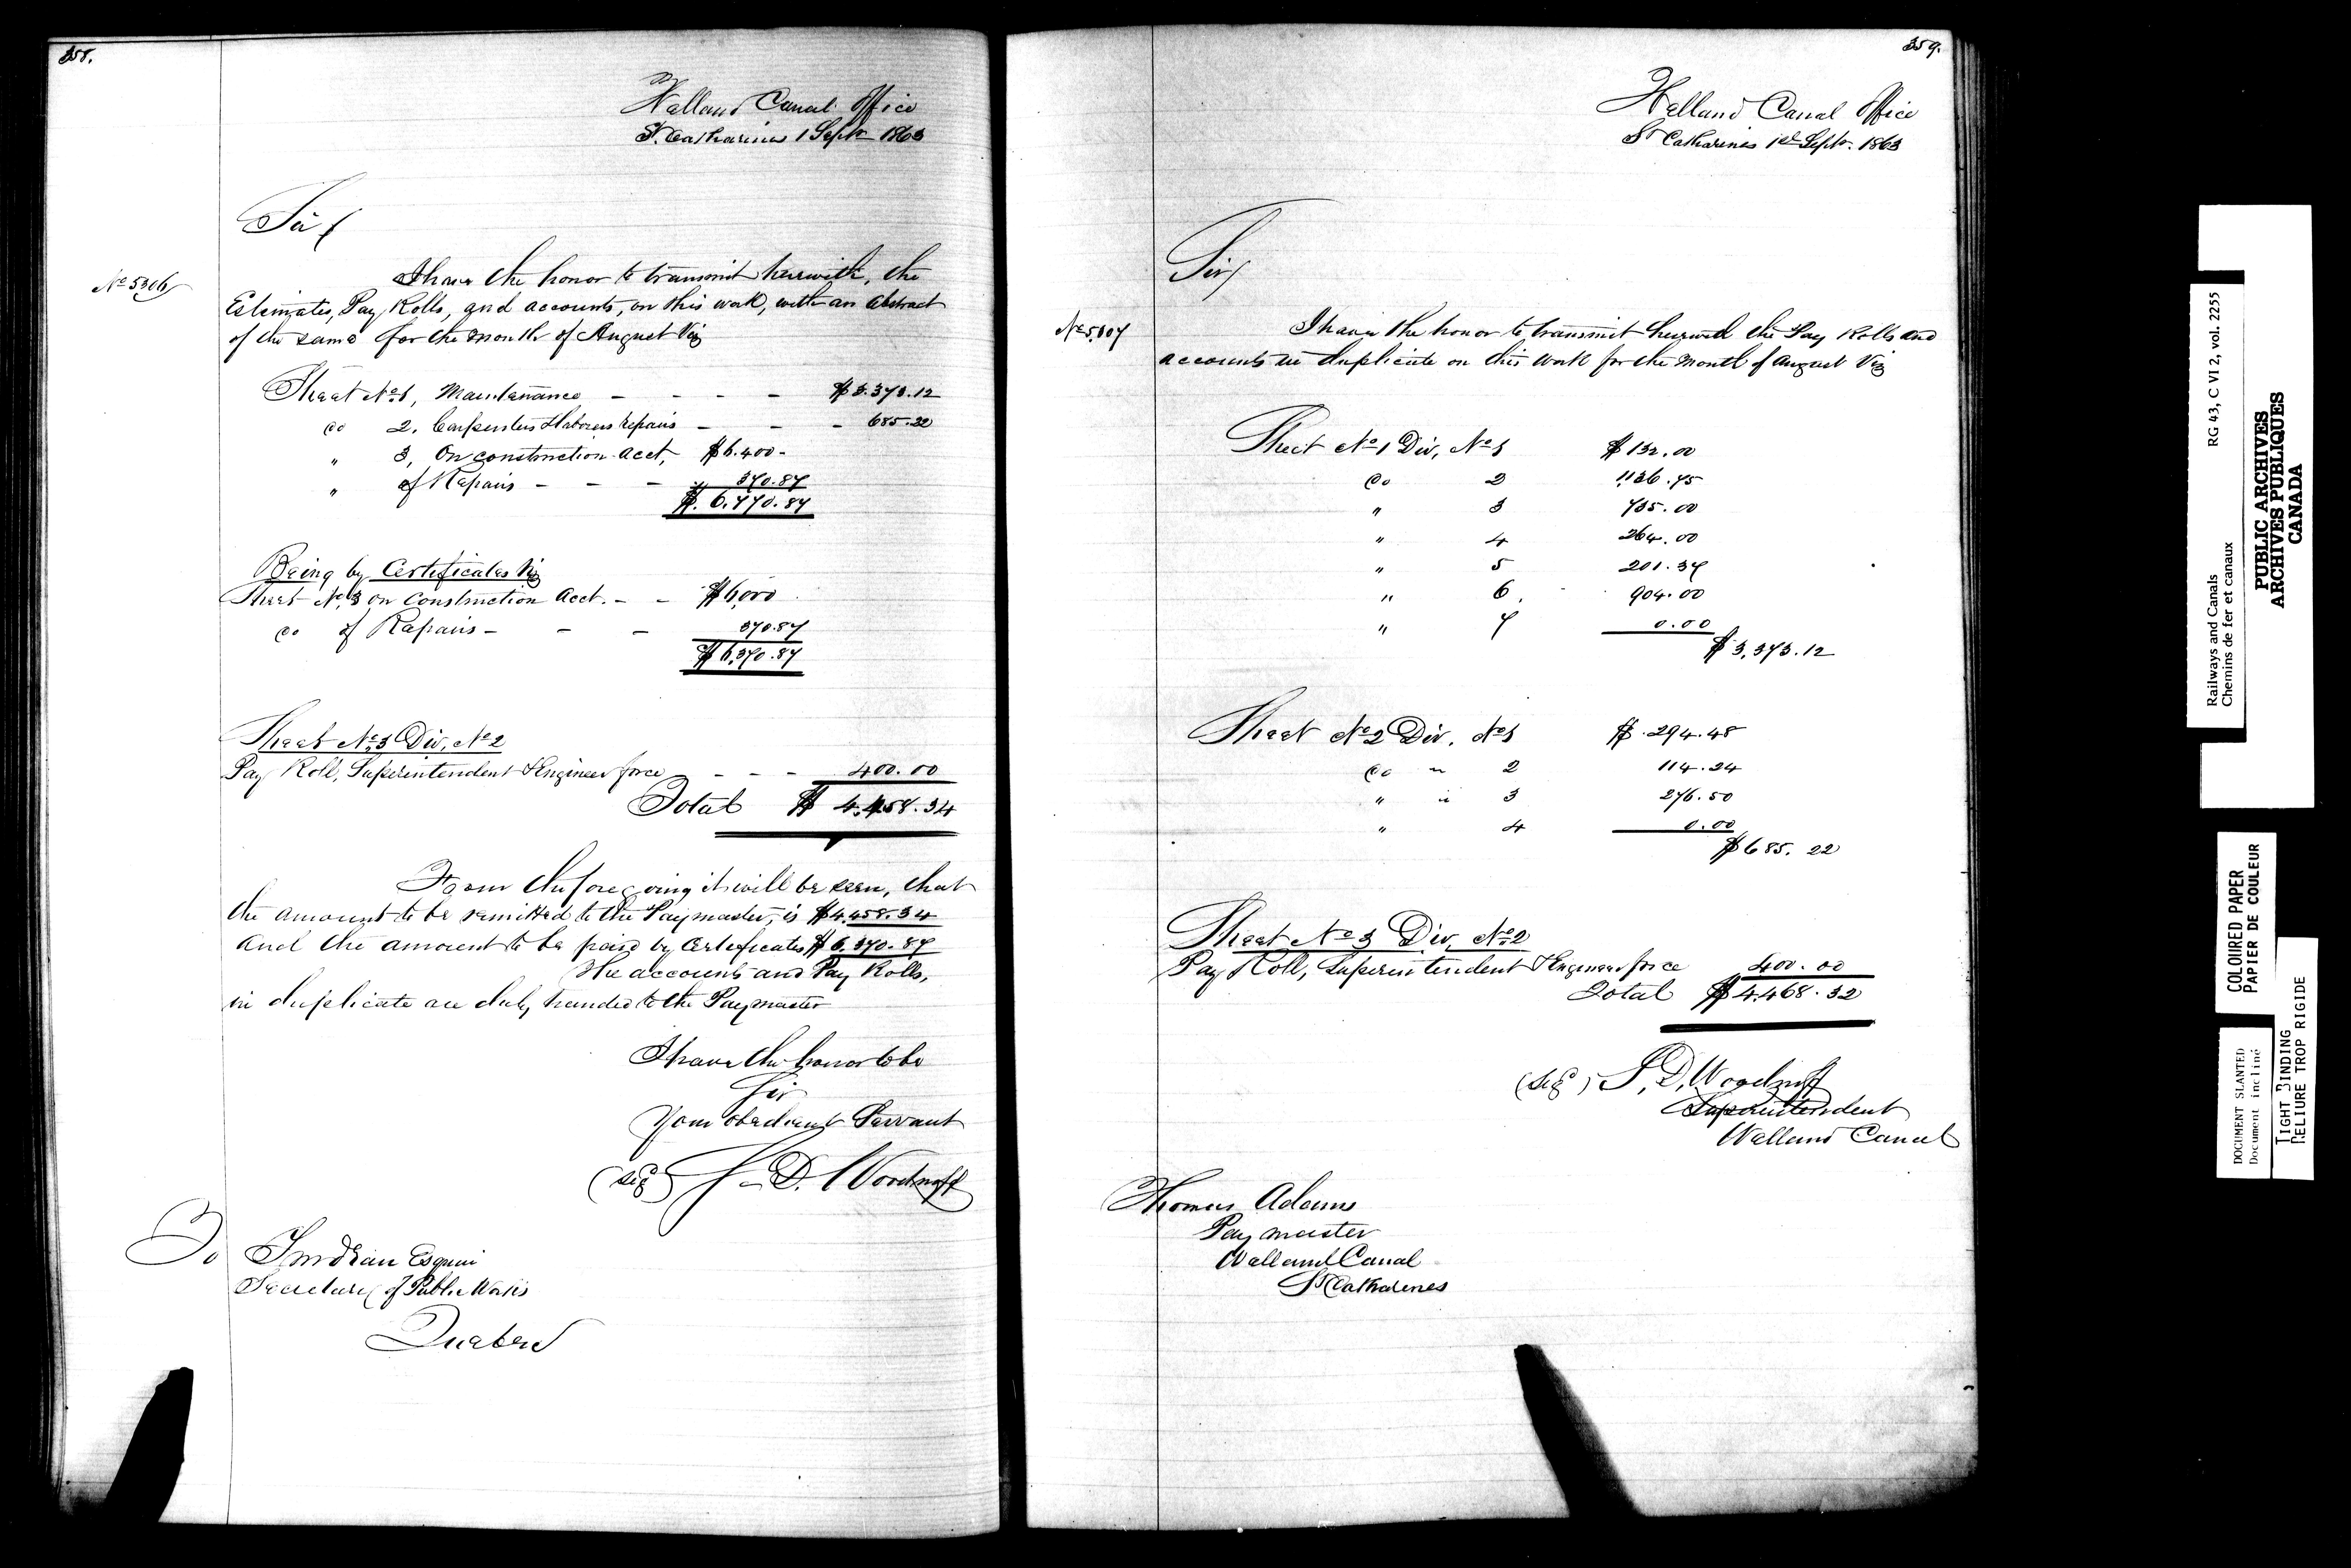 358.
Welland Canal Office
St. Catharines 1 Septr 1863
Sir/
No 5306
I have the honor to transmit herewith, the
Estimates, Pay Rolls, and accounts, on this work, with an abstract
of the same for the month of August Viz
Sheet No 1, Maintenance - - - - $3.373.12
Do 2, Carpenters & laborers repairs - - - 685.22
" 3, On construction acct, $6.400-
" of Repairs - - - " 370.87
$.6.770.87
Being by Certificates Viz
Sheet No 3 on Construction Acct. - - $6,000
Do of Repairs - - - 370.87
$6,370.87
Sheet No 3 Div, No 2
Pay Roll, Superintendent & Engineer force - - - 400.00
Total $ 4.458.34
From the foregoing it will be seen, that
the amount to be remitted to the Paymaster, is $4.458.34
and the amount to be paid by Certificates $6.370.87
The accounts and Pay Rolls,
in duplicate are duly handed to the Paymaster
I have the honor to be
Sir
Your obedient Servant
(sigd) S. D. Woodruff
To
Esquire
Secretary of Public Works
Quebec
359.
Welland Canal Office
St Catharines 1st Septr. 1863
Sir/
No 5307
I have the honor to transmit herewith the Pay Rolls and
accounts in duplicate on this work for the month of August Viz
Sheet No 1 Div, No 1 $ 132.00
Do 2 1,136.75
" 3 735.00
" 4 264.00
" 5 201.37
" 6. 904.00
" 7 0.00
$3,373.12
Sheet No 2 Div. No 1 $.294.48
Do " 2 114.24
" " 3 276.50
" 4 0.00
$685.22
Sheet No 3 Div, No 2
Pay Roll, Superintendent & Engineer force 400.00
Total $4.468.32
(sigd) S, D, Woodruff
Superintendent
Welland Canal
Thomas Adams
Pay master
Welland Canal
St Catharines
RG 43, C VI 2, vol. 2255
Railways and Canals
Chemins de fer et canaux
PUBLIC ARCHIVES
ARCHIVES PUBLIQUES
CANADA
COLOURED PAPER
PAPIER DE COULEUR
DOCUMENT SLANTED
Document incliné
TIGHT BINDING
RELIURE TROP RIGIDE